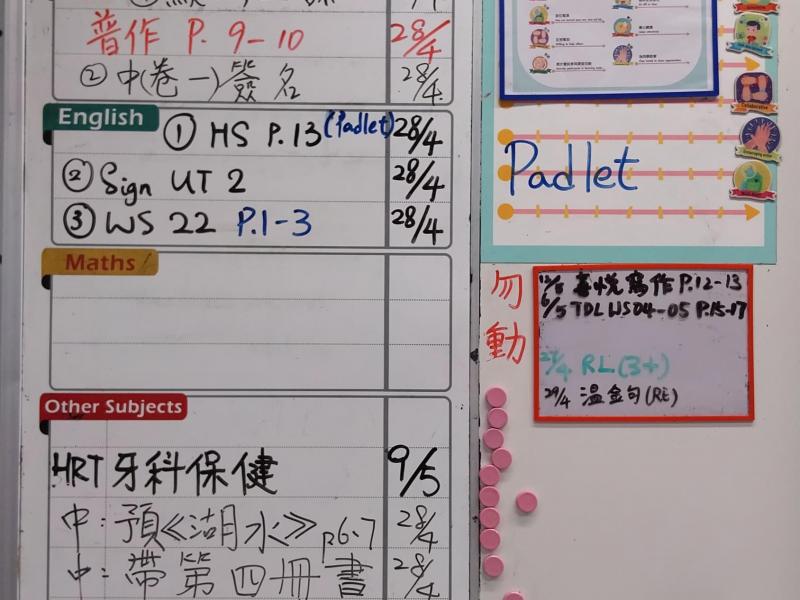 普作 P. 9-10 28/4
② 中(卷一)簽名 28/4
English
① HS P.13 (Padlet) 28/4
② Sign UT 2 28/4
③ WS 22 P.1-3 28/4
Maths
Other Subjects
HRT 牙科保健 9/5
中: 預《湖水》p6-7 28/4
中: 帶第四冊書 28/4
Padlet
勿動
悅寫作 P.12-13
6/5 TDL WS04-05 P.15-17
RL (3+)
29/4 溫金句(RE)